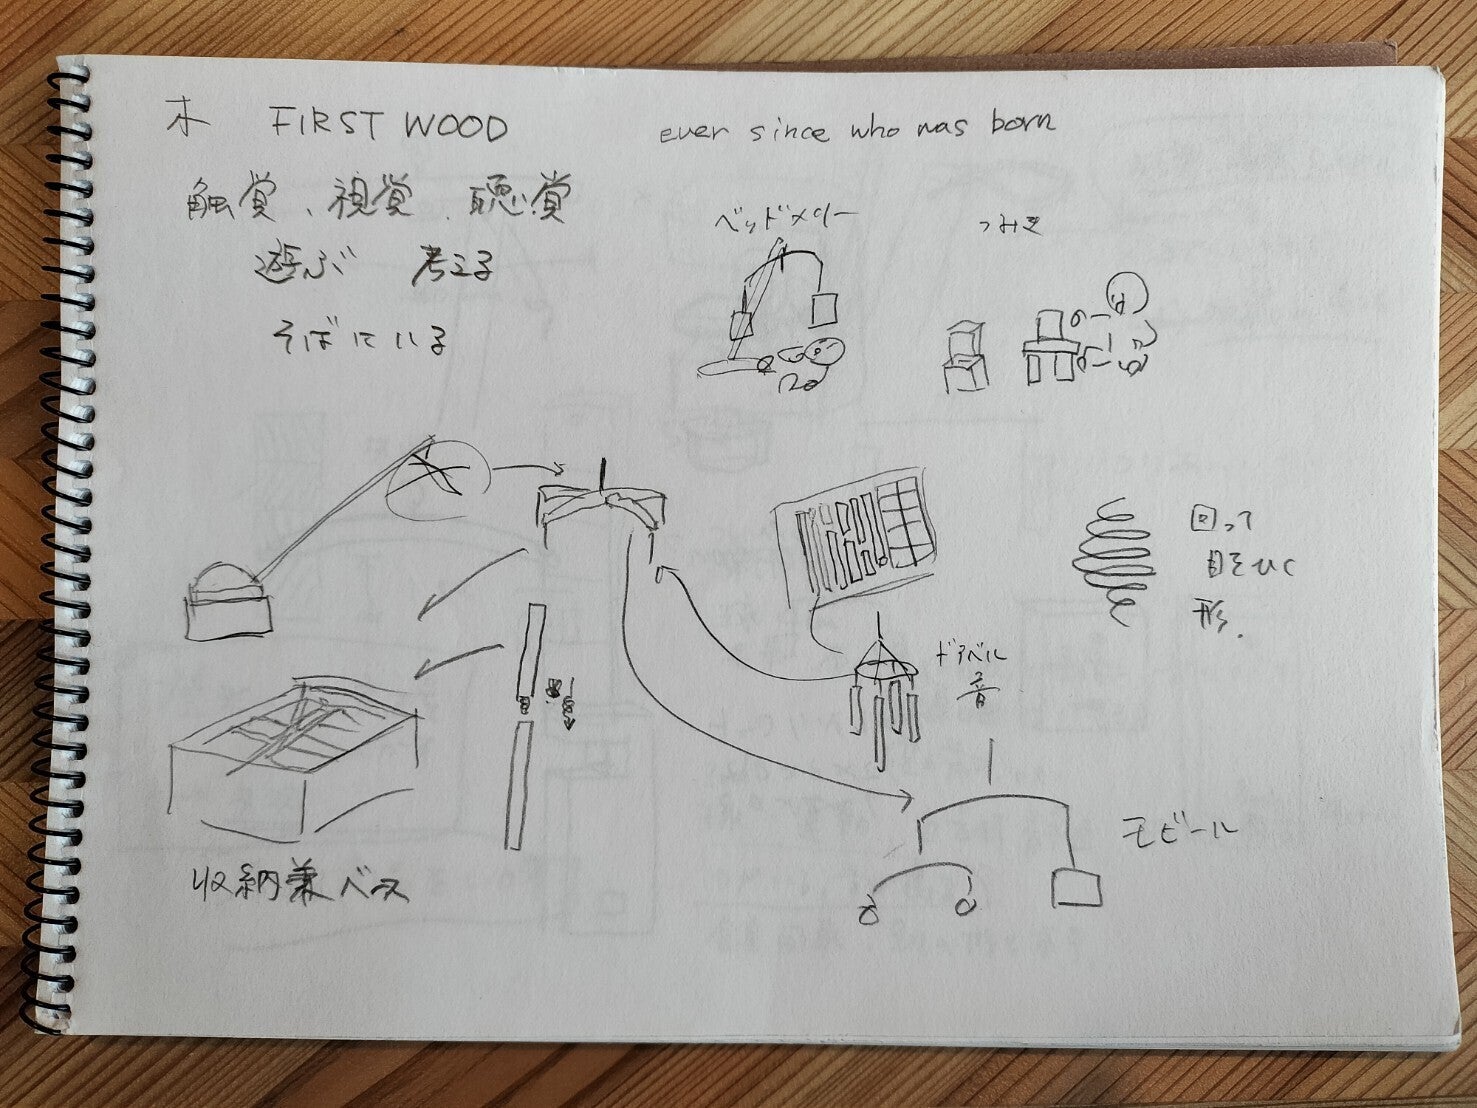 木 FIRST WOOD
ever since who was born
触覚、視覚、聴覚
遊ぶ 考える
そばにいる
ベッドメリー
つみき
回って
目をひく
形.
ドアベル
音
モビール
収納兼ベース